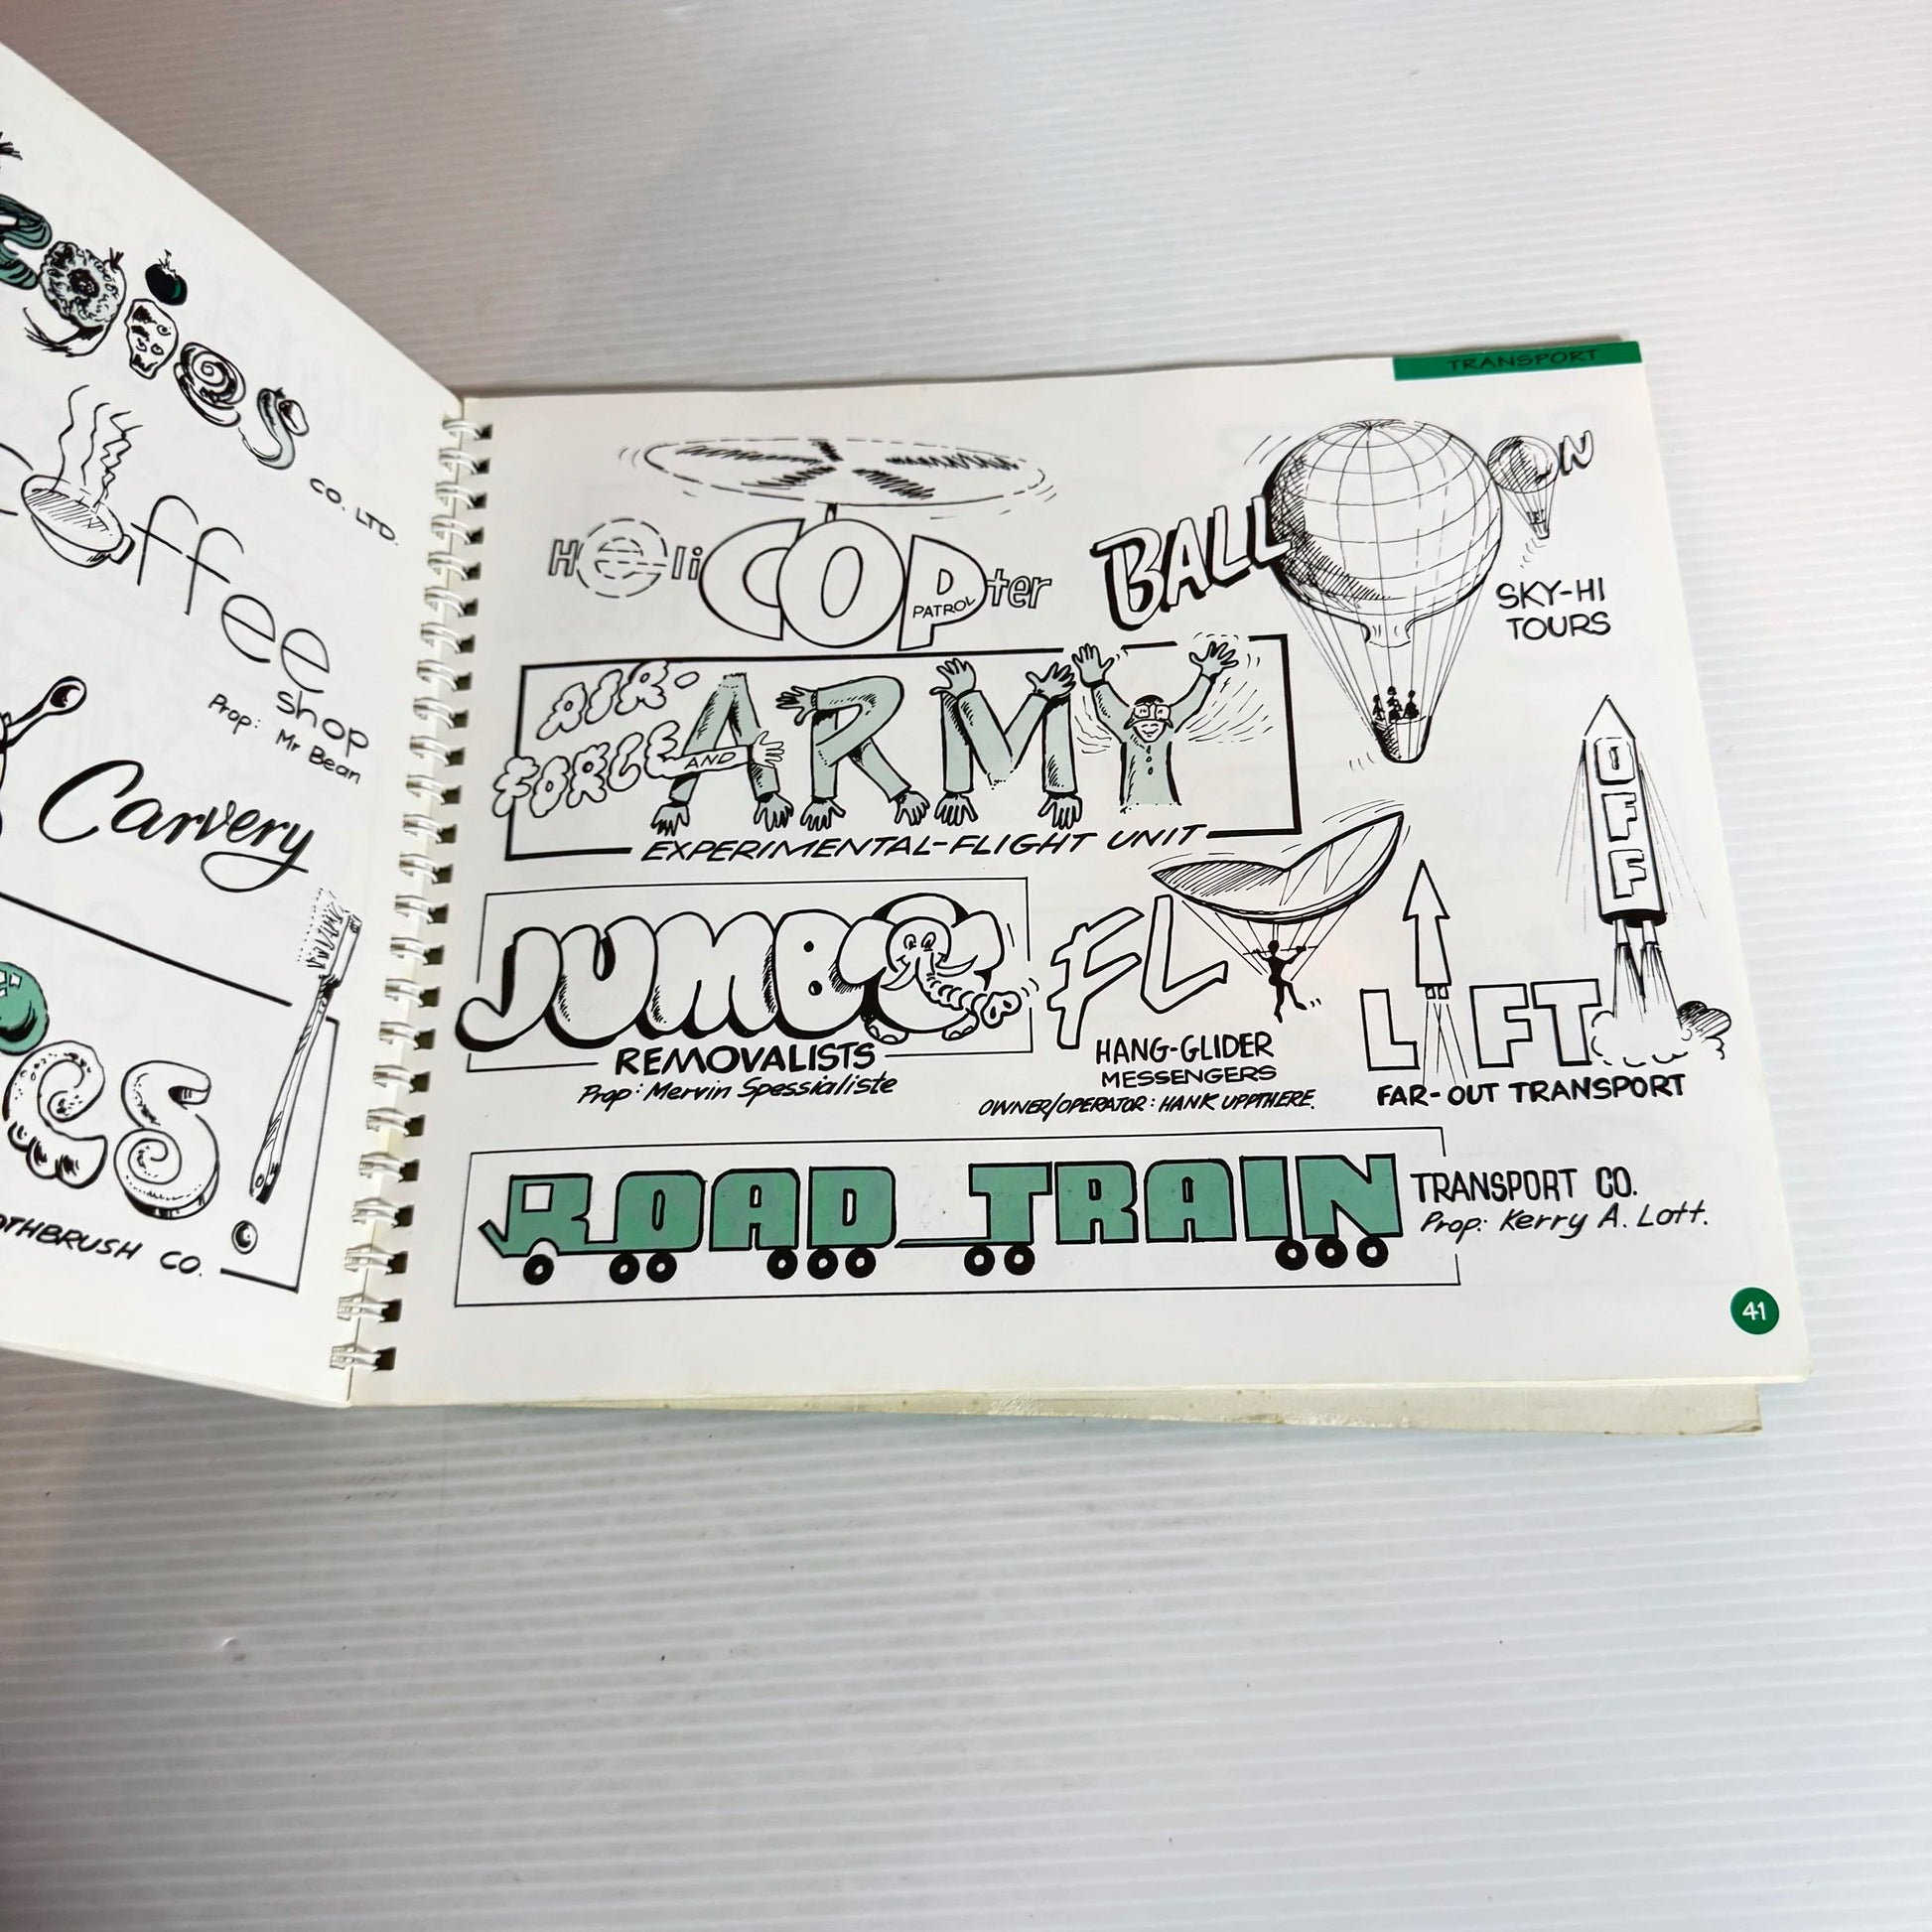 CO. LTD.
Coffee
shop
Prop: Mr Bean
Carvery
CO.
TRANSPORT
HeliCOPter
PATROL
BALLOON
SKY-HI
TOURS
AIR-
FORCE AND ARMY
EXPERIMENTAL-FLIGHT UNIT
JUMBO
REMOVALISTS
Prop: Mervin Spessialiste
FLY
HANG-GLIDER
MESSENGERS
OWNER/OPERATOR: HANK UPPTHERE.
LIFT OFF
FAR-OUT TRANSPORT
ROAD TRAIN
TRANSPORT CO.
Prop: Kerry A. Lott.
41